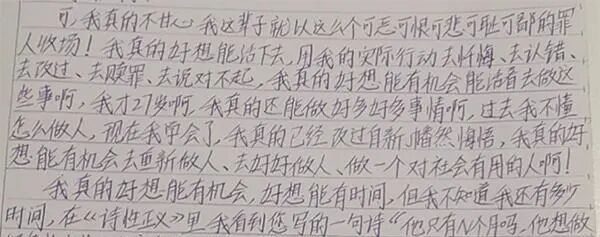 可，我真的不甘心，我这辈子就以这么个可恶可恨可悲可耻可鄙的罪
人收场！我真的好想能活下去，用我的实际行动去忏悔、去认错、
去改过、去赎罪、去说对不起，我真的好想能有机会能活着去做这
些事啊，我才27岁啊，我真的还能做好多好多事情啊，过去我不懂
怎么做人，现在我学会了，我真的已经改过自新，幡然悔悟，我真的好
想能有机会去重新做人、去好好做人、做一个对社会有用的人啊！
我真的好想能有机会，好想能有时间，但我不知道我还有多少
时间，在《诗性正义》里，我看到您写的一句诗“他只有N个月吗，他想做